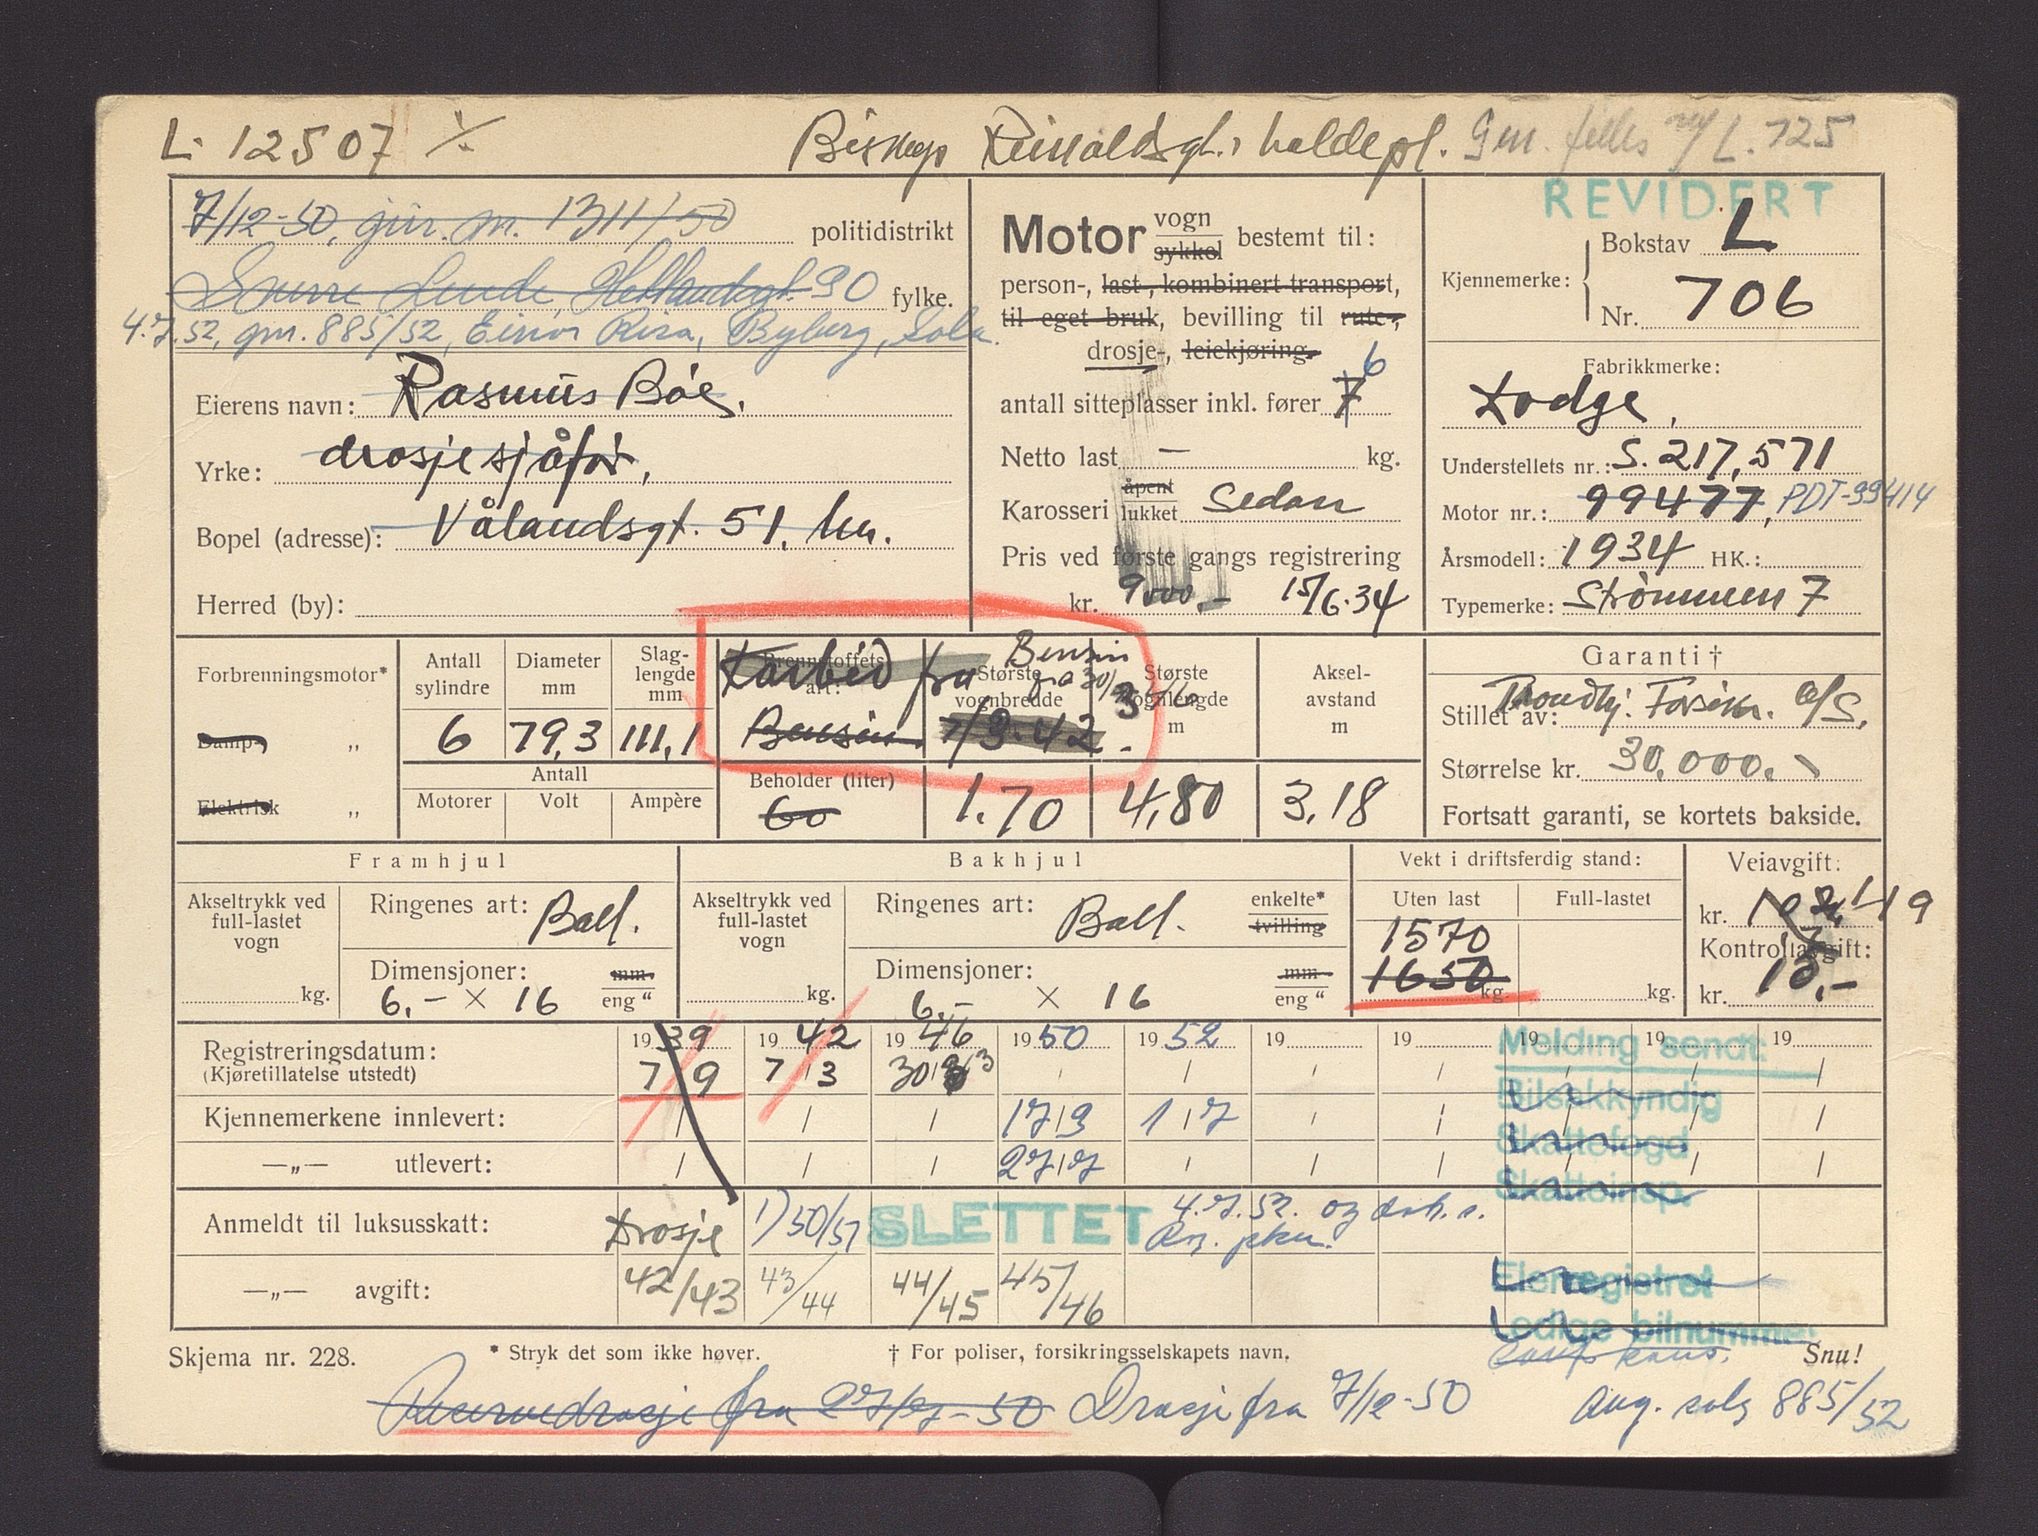 L. 12507 ⁒ Biskop Reinaldsgt., holdepl. Gm. felles m/ L. 725
REVIDERT
7/12-50, gjnr. m. 1311/50 politidistrikt
90 fylke.
4.7.52, gm. 885/52, Einar Risa, Byberg, Sola.
Eierens navn: Rasmus Bøe,
Yrke: drosjesjåfør,
Bopel (adresse): Vålandsgt. 51. hn.
Herred (by):
Motor vogn sykkel bestemt til:
person-, last-, kombinert transport,
til eget bruk, bevilling til rute-,
drosje-, leiekjøring.
antall sitteplasser inkl. fører 7 6
Netto last — kg.
Karosseri åpent lukket Sedan
Pris ved første gangs registrering
kr. 9000,- 15/6.34
Kjennemerke: Bokstav L
Nr. 706
Fabrikkmerke:
Dodge,
Understellets nr.: S. 217,571
Motor nr.: 99477, PDT-99414
Årsmodell: 1934 HK.:
Typemerke: Strømmen 7
Forbrenningsmotor*
Damp- „
Elektrisk „
Antall sylindre 6
Diameter mm 79,3
Slaglengde mm 111,1
Antall
Motorer Volt Ampère
Brennstoffets art: Karbid fra 7/3.42.
Bensin
Bensin fra 30/3 46
Beholder (liter) 60
Største vognbredde 1.70
Største vognlengde m 4,80
Akselavstand m 3,18
Garanti †
Stillet av: Trondhj. Forsikr. A/S,
Størrelse kr. 30.000.-
Fortsatt garanti, se kortets bakside.
Framhjul
Akseltrykk ved full-lastet vogn kg.
Ringenes art: Ball.
Dimensjoner: mm. eng “
6,- × 16
Bakhjul
Akseltrykk ved full-lastet vogn kg.
Ringenes art: Ball. enkelte* tvilling
Dimensjoner: mm eng “
6,- × 16
Vekt i driftsferdig stand:
Uten last Full-lastet
1570
1650 kg. kg.
Veiavgift:
kr. 119
Kontrollavgift:
kr. 10,-
Registreringsdatum: 1939 1942 1946 1950 1952 19 19 19 19 19
(Kjøretillatelse utstedt) 7/9 7/3 30/3
Kjennemerkene innlevert: 17/9 1/7
—„— utlevert: 27/7
Anmeldt til luksusskatt: Drosje 1) 50/51 SLETTET 4.7.52.
—„— avgift: 42/43 43/44 44/45 45/46
Melding sendt:
Bilsakkyndig
Skattefogd
Skatteinsp.
Eierregistret
Ledige bilnummer
Skjema nr. 228. * Stryk det som ikke høver. † For poliser, forsikringsselskapets navn. Snu!
Reservedrosje fra 27/7-50 Drosje fra 7/12-50 Avg. solg 885/52